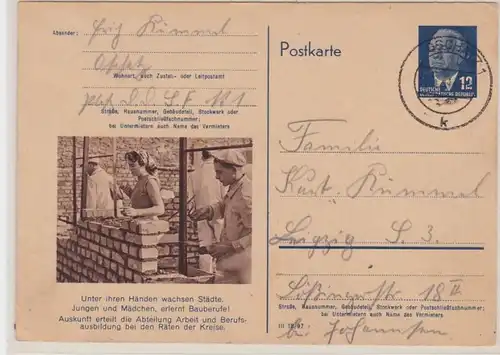 Absender: Kümmel
Wohnort, auch Zustell- oder Leitpostamt
Straße, Hausnummer, Gebäudeteil, Stockwerk oder
Postschließfachnummer;
bei Untermietern auch Name des Vermieters
Unter ihren Händen wachsen Städte.
Jungen und Mädchen, erlernt Bauberufe!
Auskunft erteilt die Abteilung Arbeit und Berufs-
ausbildung bei den Räten der Kreise.
Postkarte
DEUTSCHE 12
DEMOKRATISCHE REPUBLIK
k
Familie
Kurt Kümmel
Leipzig S. 3.
18 II
Straße, Hausnummer, Gebäudeteil, Stockwerk oder Postschließfachnummer;
bei Untermietern auch Name des Vermieters
III 18/97
bei Johannsen